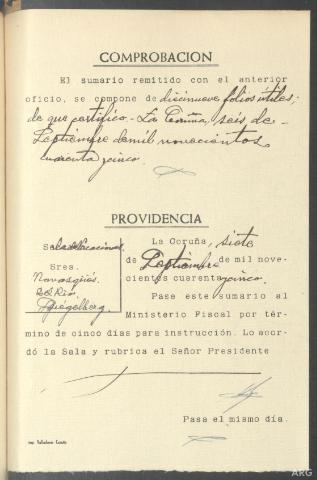 COMPROBACION
El sumario remitido con el anterior
oficio, se compone de diecinueve folios útiles;
de que certifico.- La Coruña, seis de
Septiembre de mil novecientos
cuarenta y cinco.
PROVIDENCIA
Sala de Vacaciones
Sres.
del Rio
Spiegelberg
La Coruña, siete
de Septiembre de mil nove-
cientos cuarenta y cinco.
Pase este sumario al
Ministerio Fiscal por tér-
mino de cinco días para instrucción. Lo acor-
dó la Sala y rubrica el Señor Presidente
Pasa el mismo día.
ARG